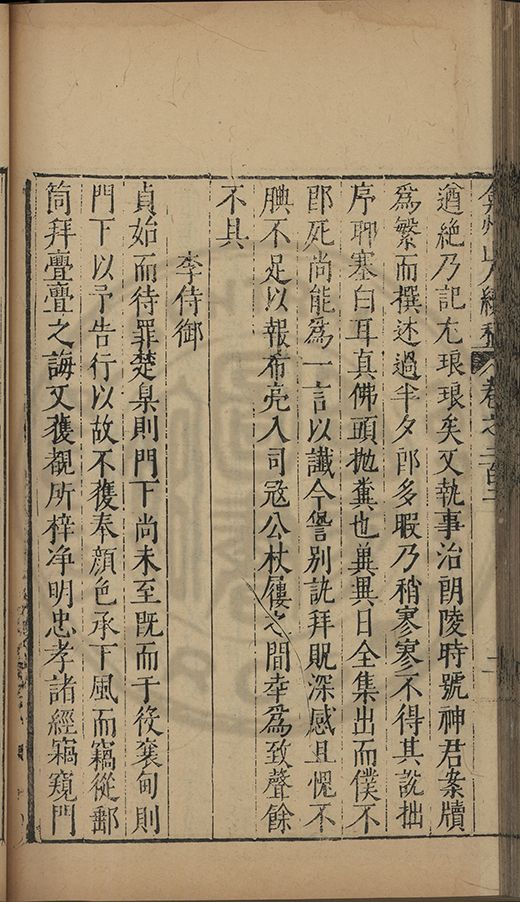 弇州山人續稿 卷之二百二
遒絶乃記尤琅琅矣又執事治朗陵時號神君案牘
爲繁而撰述過半夕郎多暇乃稍寥寥不得其說拙
序聊塞白耳真佛頭拋糞也異日全集出而僕不
即死尚能爲一言以讖今訾別訛拜貺深感且愧不
腆不足以報希亮入司寇公杖屨之間幸爲致聲餘
不具
李侍御
貞始而待罪楚臬則門下尚未至旣而于役襄甸則
門下以予告行以故不獲奉顔色承下風而竊從郵
筒拜亹亹之誨又獲覩所梓淨明忠孝諸經竊窺門